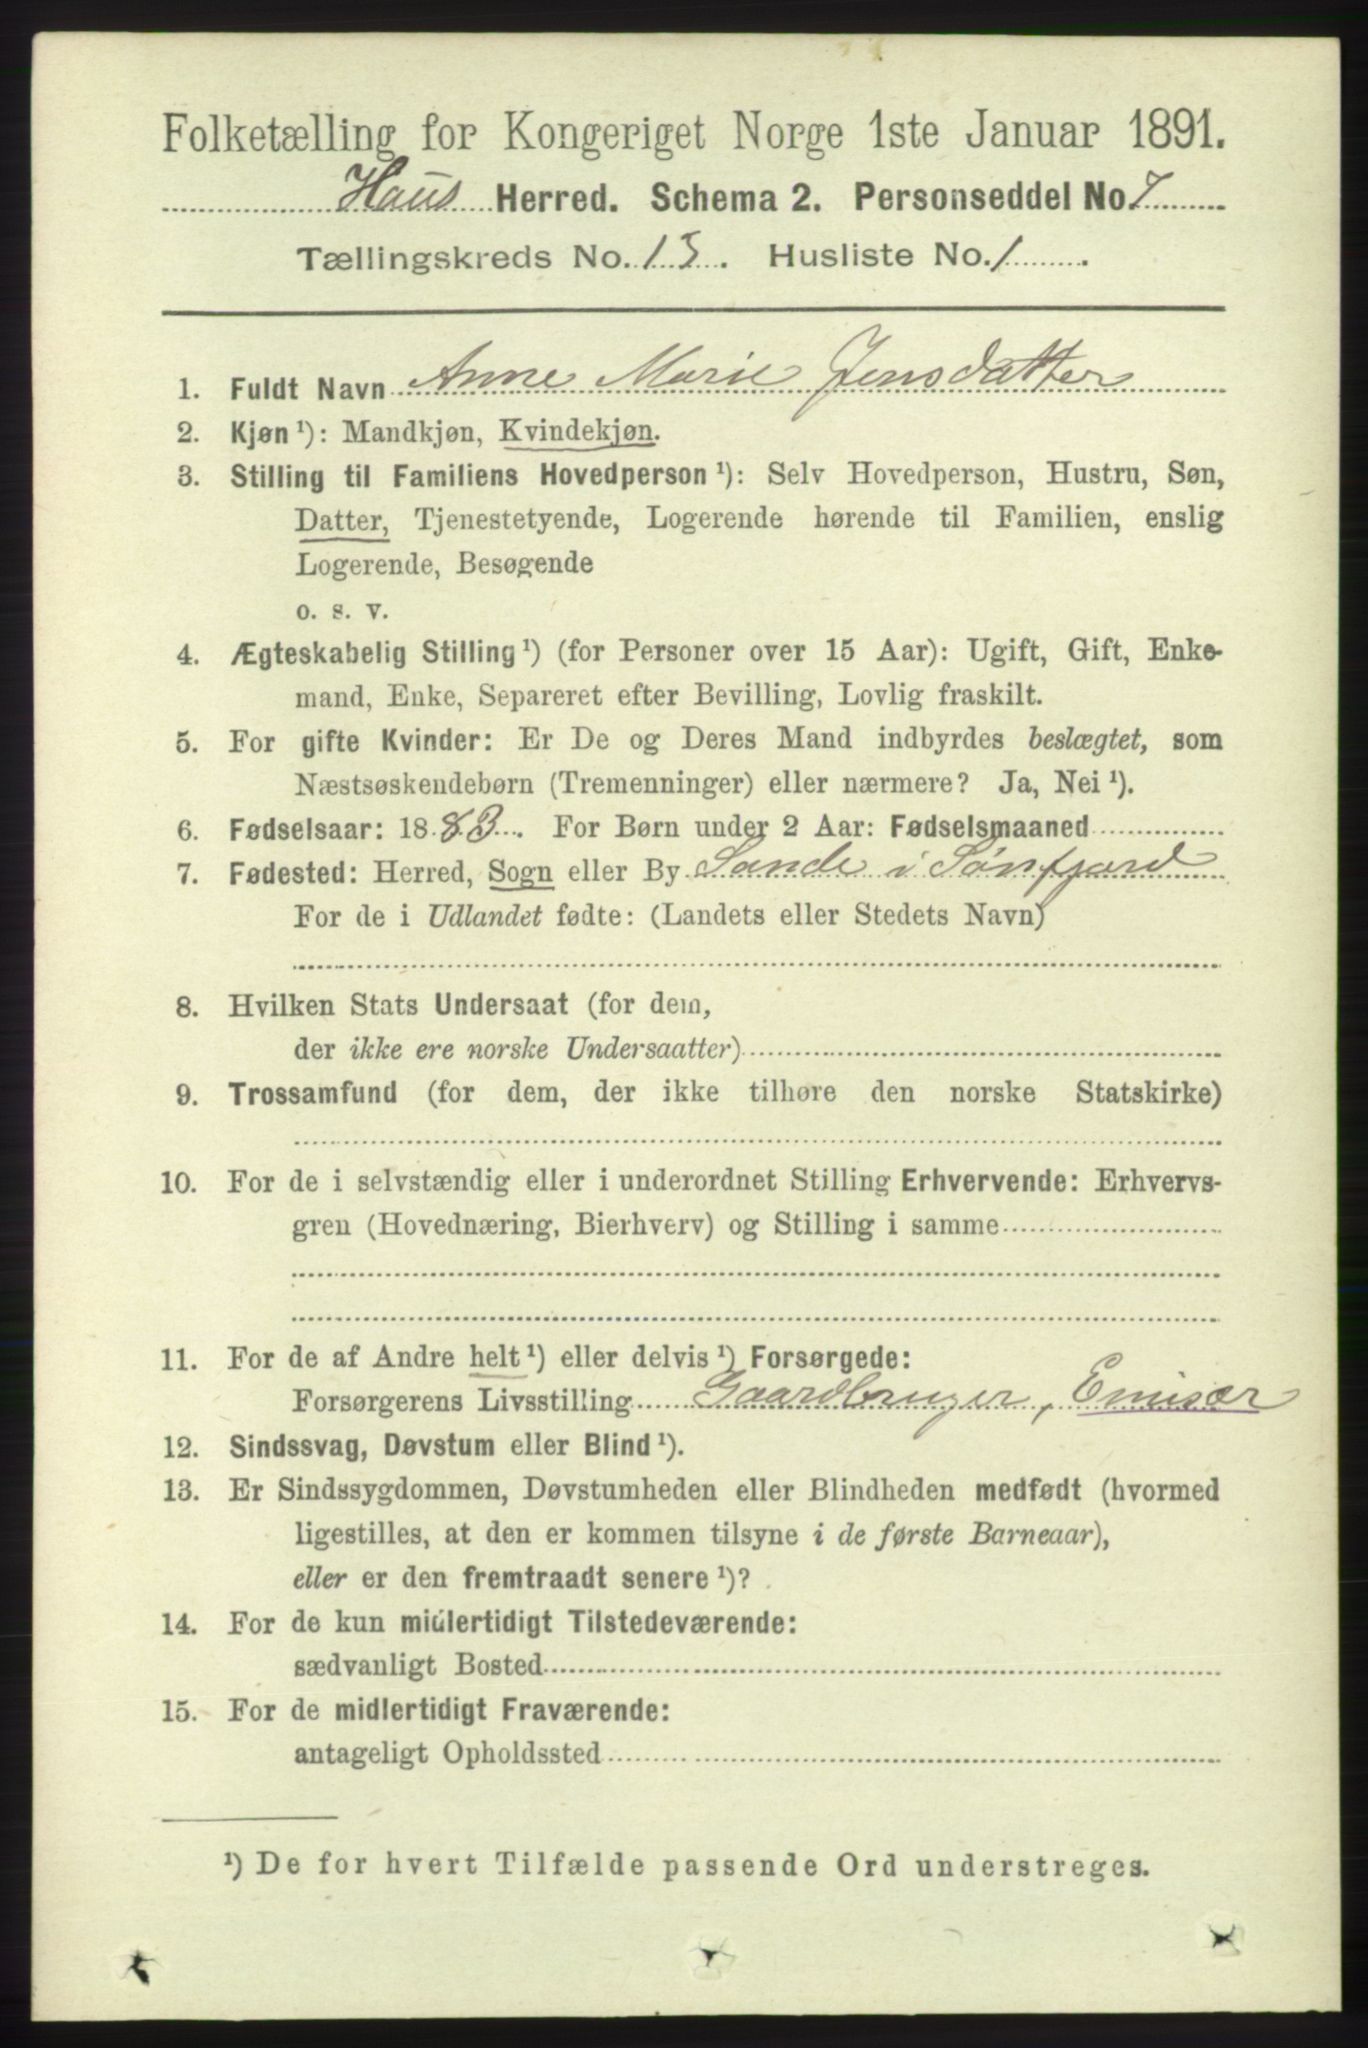 Folketælling for Kongeriget Norge 1ste Januar 1891.
Haus Herred. Schema 2. Personseddel No. 7
Tællingskreds No. 13. Husliste No. 1
1. Fuldt Navn Anne Marie Jensdatter
2. Kjøn ¹): Mandkjøn, Kvindekjøn.
3. Stilling til Familiens Hovedperson ¹): Selv Hovedperson, Hustru, Søn,
Datter, Tjenestetyende, Logerende hørende til Familien, enslig
Logerende, Besøgende
o. s. v.
4. Ægteskabelig Stilling ¹) (for Personer over 15 Aar): Ugift, Gift, Enke-
mand, Enke, Separeret efter Bevilling, Lovlig fraskilt.
5. For gifte Kvinder: Er De og Deres Mand indbyrdes beslægtet, som
Næstsøskendebørn (Tremenninger) eller nærmere? Ja, Nei ¹).
6. Fødselsaar: 1883. For Børn under 2 Aar: Fødselsmaaned
7. Fødested: Herred, Sogn eller By Sande i Sønfjord
For de i Udlandet fødte: (Landets eller Stedets Navn)
8. Hvilken Stats Undersaat (for dem,
der ikke ere norske Undersaatter)
9. Trossamfund (for dem, der ikke tilhøre den norske Statskirke)
10. For de i selvstændig eller i underordnet Stilling Erhvervende: Erhvervs-
gren (Hovednæring, Bierhverv) og Stilling i samme
11. For de af Andre helt ¹) eller delvis ¹) Forsørgede:
Forsørgerens Livsstilling Gaardbruger, Emisær
12. Sindssvag, Døvstum eller Blind ¹).
13. Er Sindssygdommen, Døvstumheden eller Blindheden medfødt (hvormed
ligestilles, at den er kommen tilsyne i de første Barneaar),
eller er den fremtraadt senere ¹)?
14. For de kun midlertidigt Tilstedeværende:
sædvanligt Bosted
15. For de midlertidigt Fraværende:
antageligt Opholdssted
¹) De for hvert Tilfælde passende Ord understreges.